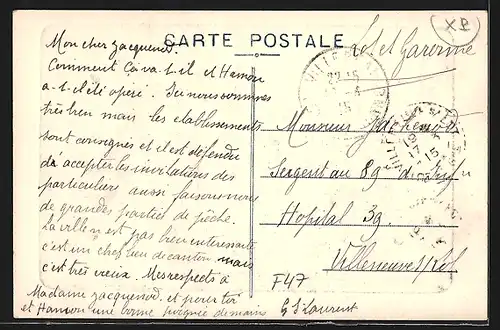 CARTE POSTALE
XB
Mon cher Jacquenod.
Comment ça va-t-il et Hanson
a-t-il été opéré. Ici nous sommes
très bien mais les etablissements
sont consignés et il est défendu
d'accepter les invitations des
particuliers aussi faisons-nous
de grandes parties de pêche.
La ville n'est pas bien intéressante
c'est un chef lieu de canton mais
c'est très vieux. Mes respects à
Madame Jacquenod. et pour toi
et Hanson une bonne poignée de mains
G St Laurent
Lot et Garonne
Monsieur Jacquenod
Sergent au 89
Hopital 39
Villeneuve s/Lot
F47